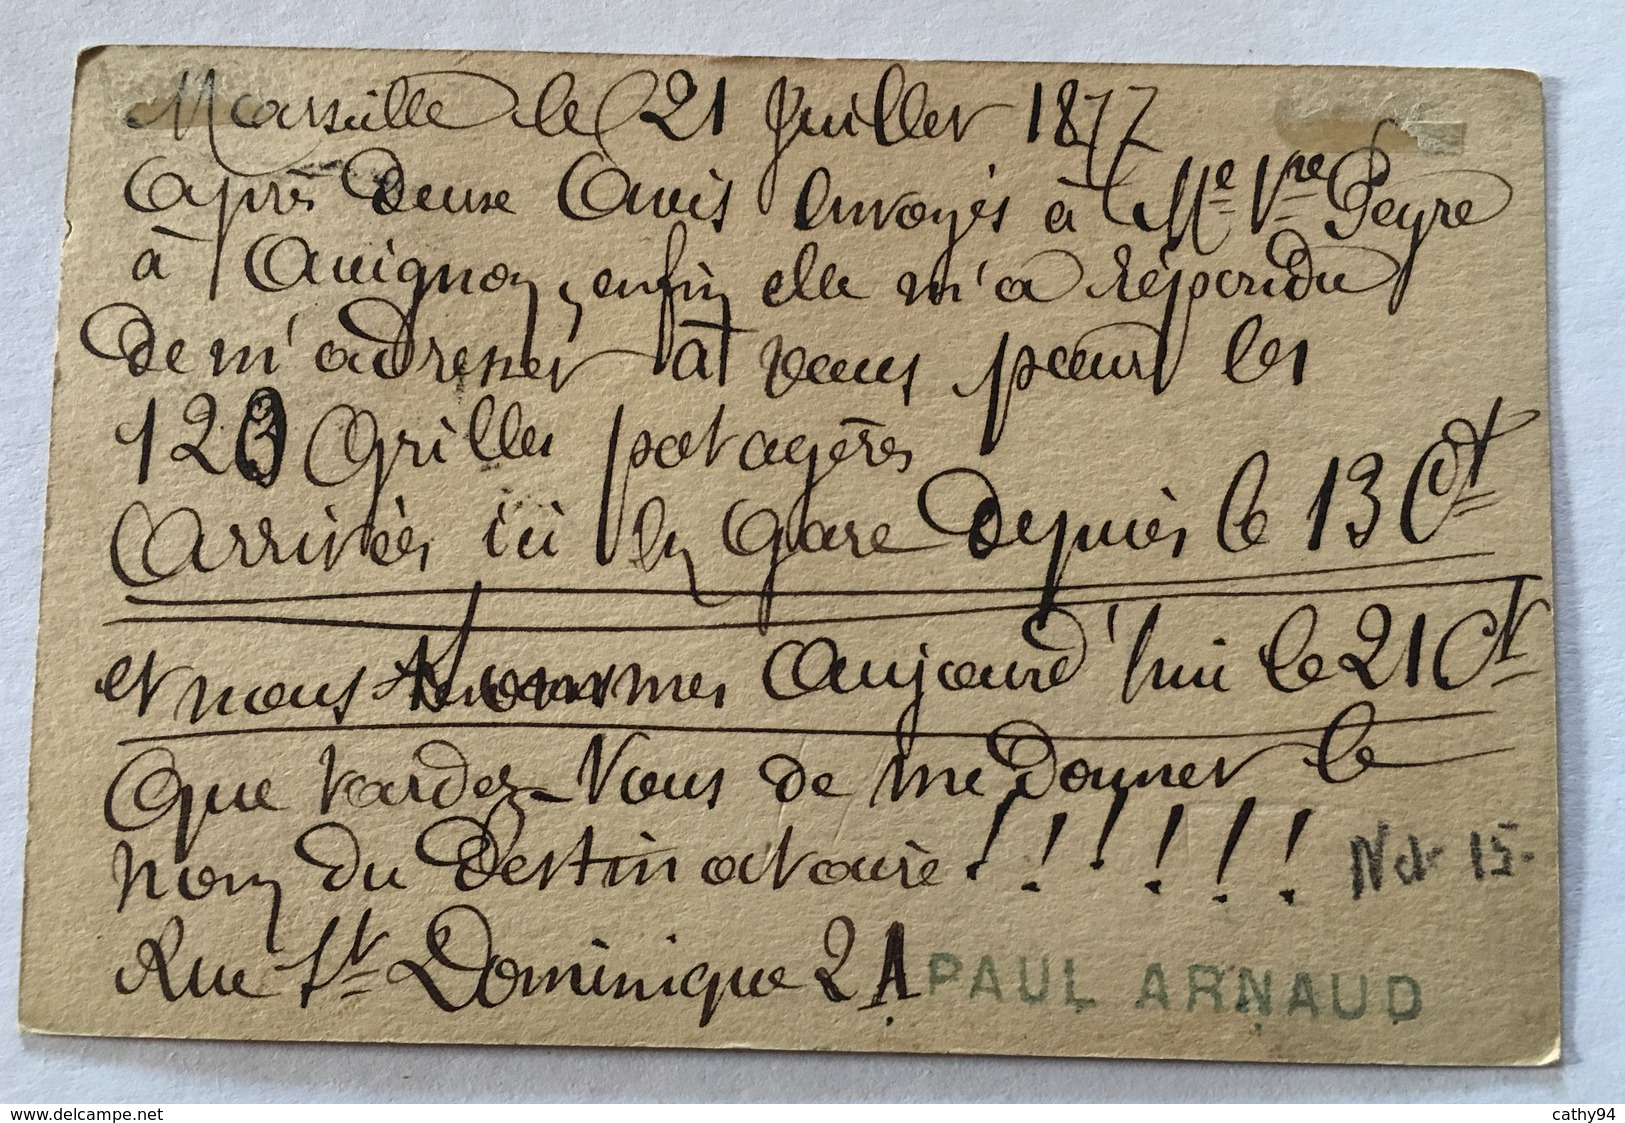 Marseille le 21 Juillet 1877
après deux Avis Envoyés à Me Vve Peyre
à Avignon, enfin elle m'a répondu
de m'adresser à vous pour les
120 Grilles potagères
Arrivées ici En Gare depuis le 13 Ct
et nous sommes Aujourd'hui le 21 Ct
Que tardez-Vous de me donner le
nom du Destinataire !!!!!!
Rue St Dominique 2A PAUL ARNAUD
www.delcampe.net
cathy94